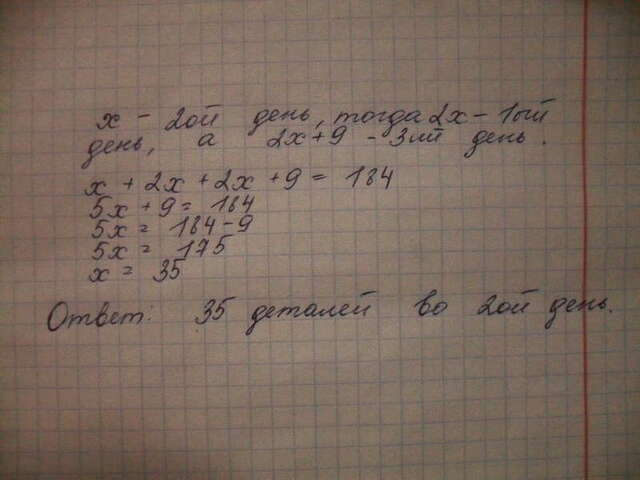 x - 2ой день, тогда 2x - 1ый
день, а 2x+9 - 3ий день.
x + 2x + 2x + 9 = 184
5x + 9 = 184
5x = 184-9
5x = 175
x = 35
Ответ: 35 деталей во 2ой день.